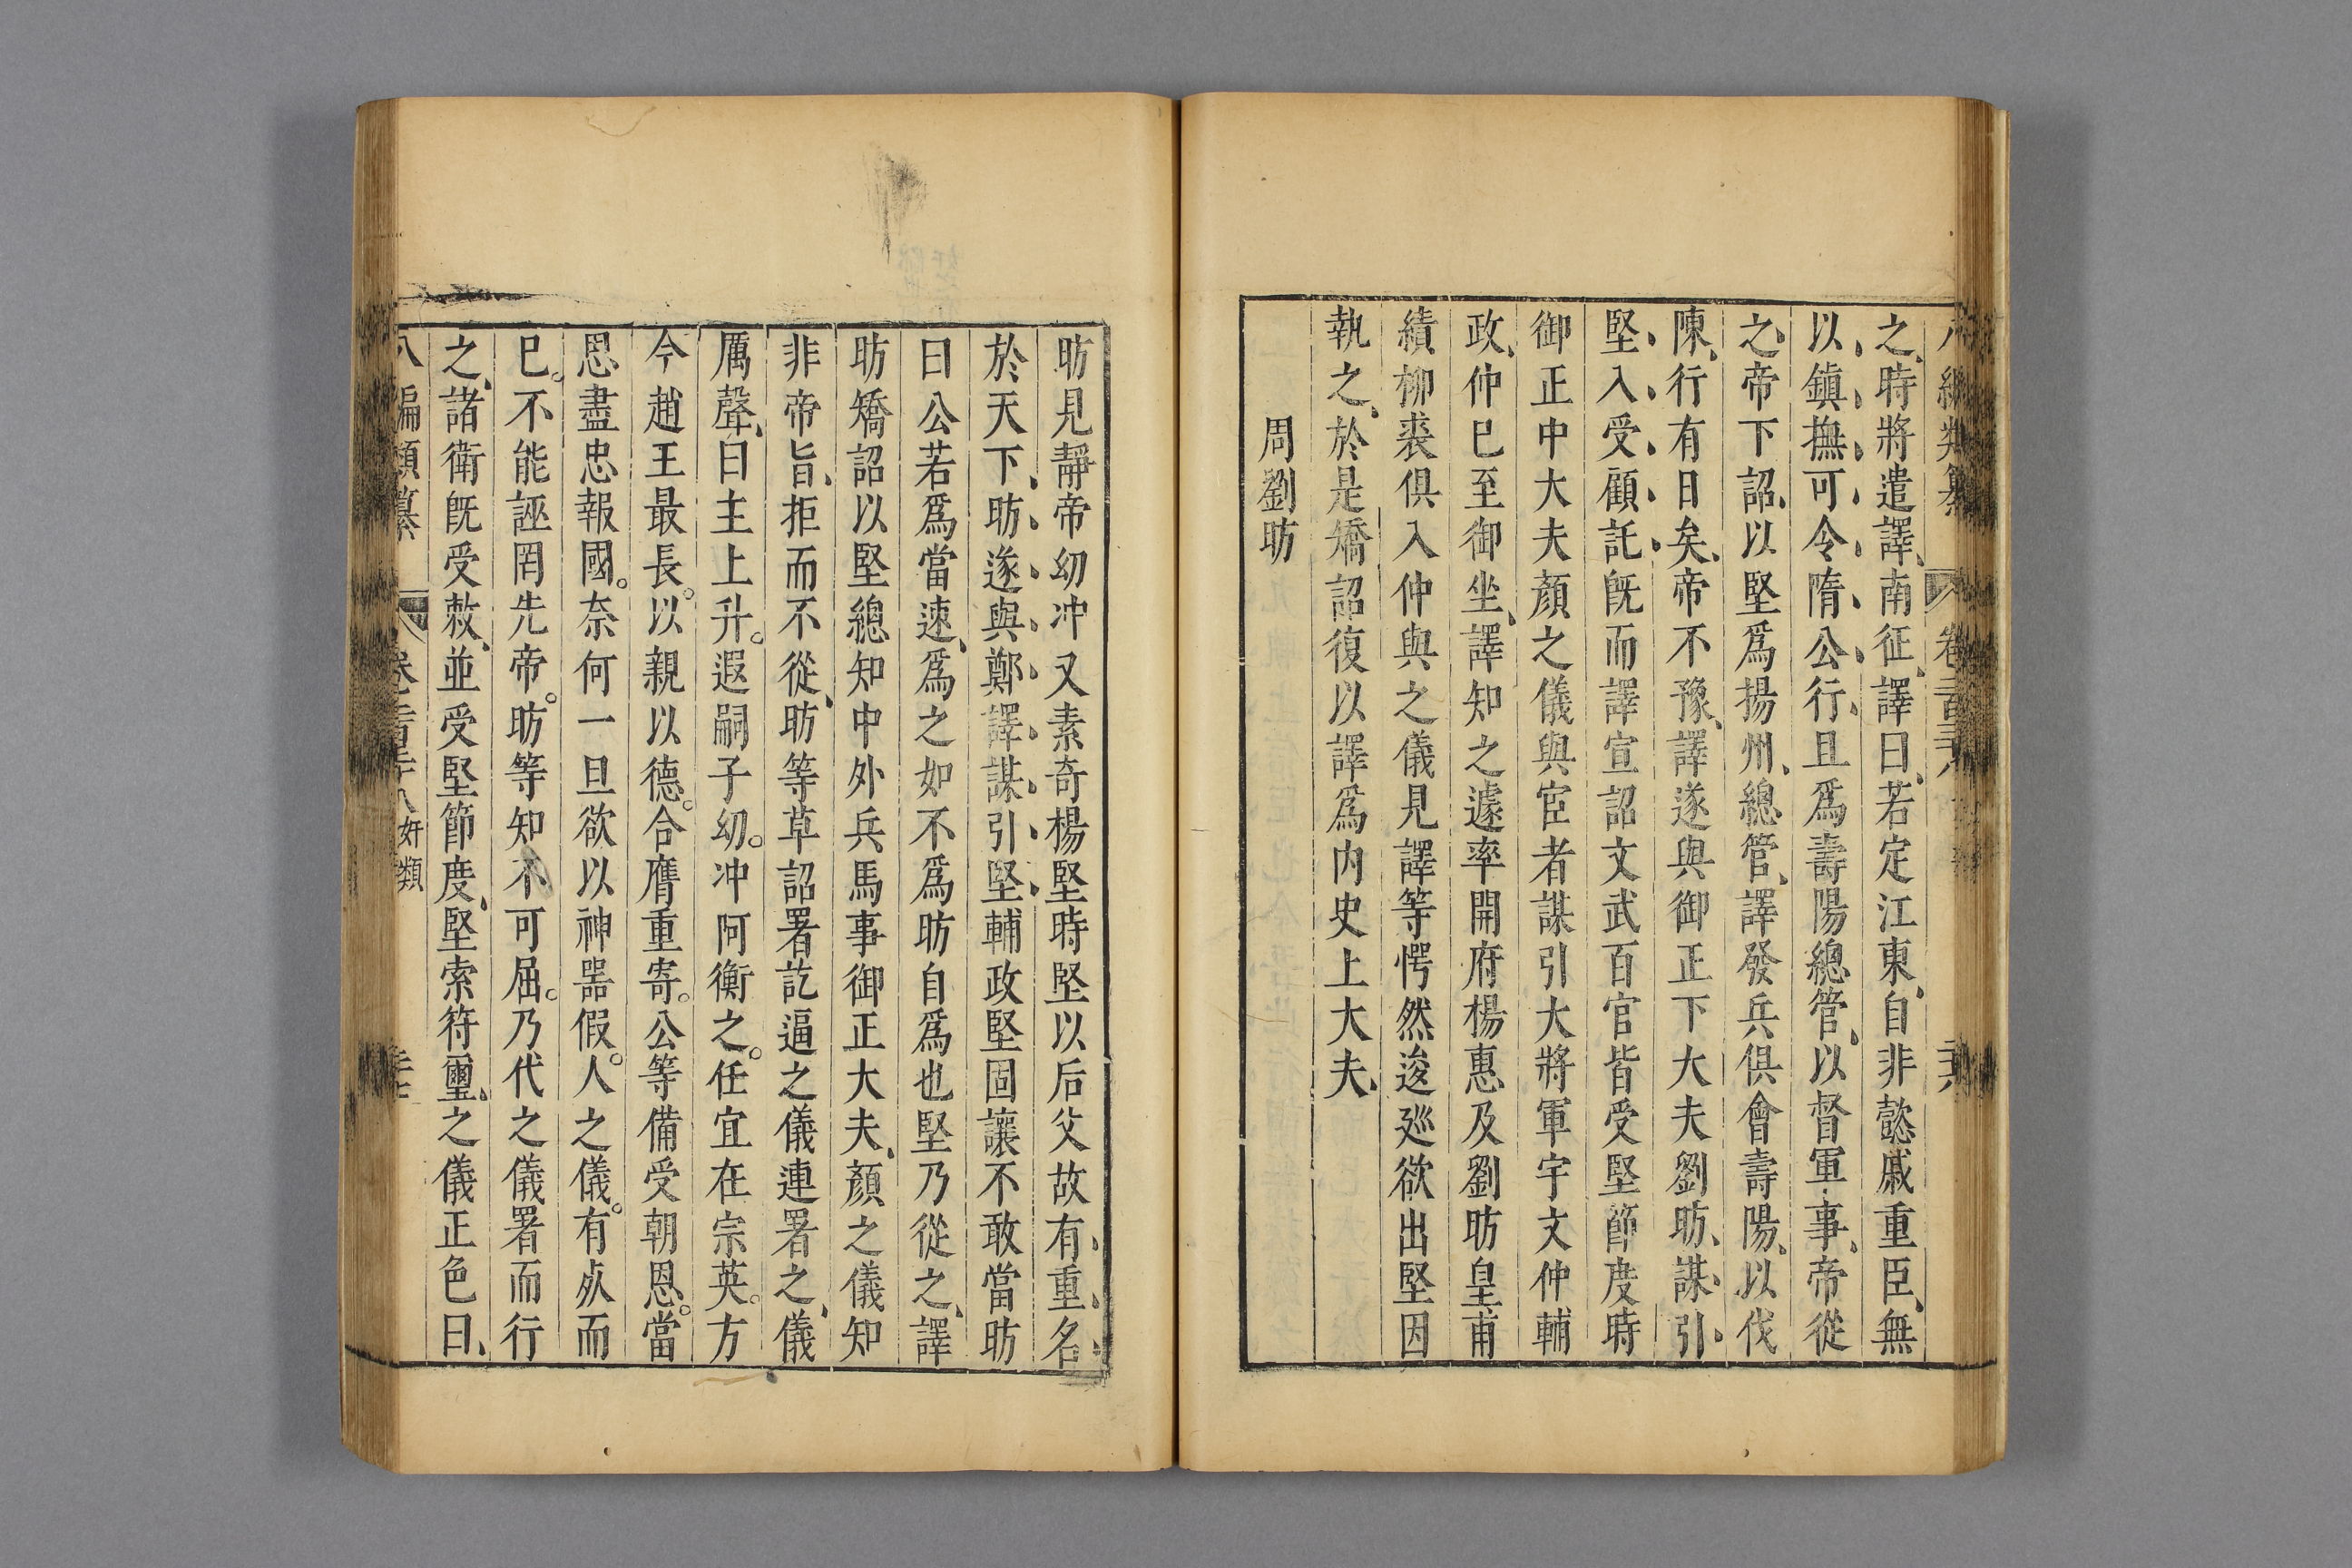 八編類纂　卷二百二十八　二十六
之、時將遣譯、南征、譯曰、若定江東、自非懿戚重臣、無
以鎮撫、可令隋公行、且爲壽陽總管、以督軍事、帝從
之、帝下詔、以堅爲揚州、總管、譯發兵俱會壽陽、以伐
陳、行有日矣、帝不豫、譯遂與御正下大夫劉昉、謀引
堅入受顧託旣而譯宣詔文武百官皆受堅節度時
御正中大夫顏之儀與宦者謀引大將軍宇文仲輔
政、仲已至御坐、譯知之遽率開府楊惠及劉昉皇甫
績柳裘俱入仲與之儀見譯等愕然逡廵欲出堅因
執之、於是矯詔復以譯爲内史上大夫、
周劉昉
昉見靜帝幼冲又素奇楊堅時堅以后父故有重名
於天下、昉遂與鄭譯謀引堅輔政堅固讓不敢當昉
曰公若爲當速、爲之如不爲昉自爲也堅乃從之、譯
昉矯詔以堅總知中外兵馬事御正大夫、顏之儀知
非帝旨、拒而不從、昉等草詔署訖逼之儀連署之、儀
厲聲、曰主上升。遐嗣子幼。冲阿衡之。任宜在宗英。方
今趙王最長。以親以德。合膺重寄。公等備受朝恩。當
思盡忠報國。奈何一旦欲以神噐假。人之儀。有𣦸而
已。不能誣罔先帝。昉等知不可屈。乃代之儀署而行
之、諸衛旣受敕、並受堅節度、堅索符璽、之儀正色曰、
八編類纂　卷二百二十八　奸類　二十七